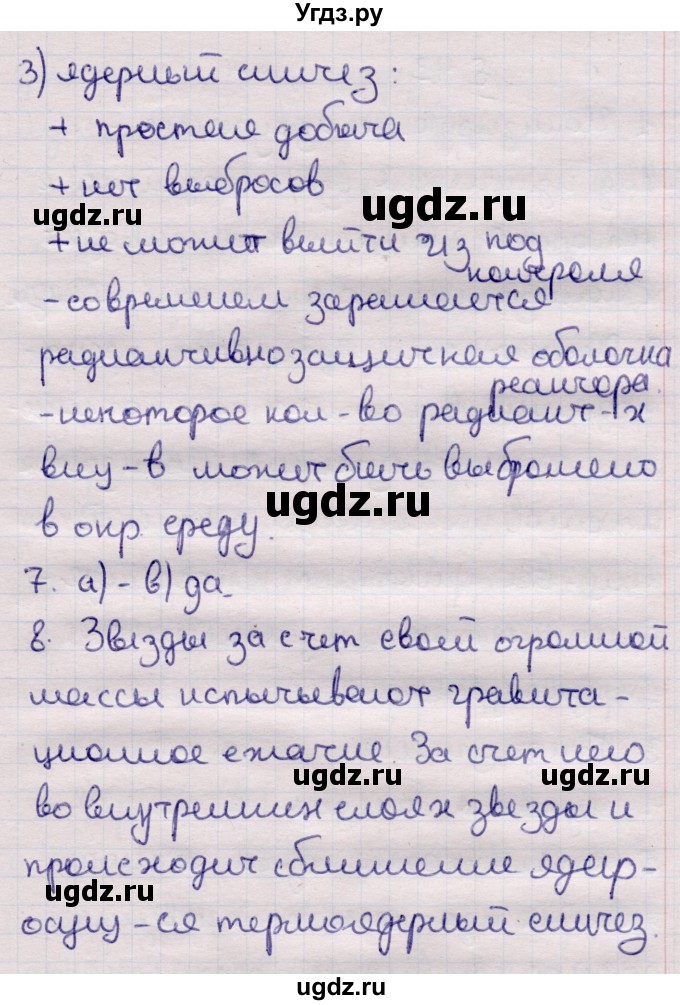 Угдз.ру
3) ядерный синтез:
+ простая добыча
+ нет выбросов
ugdz.ru ugdz.ru
+ не может выйти из под
контроля
- современем заражается
радиактивнозащитная оболочка
реактора.
- некоторое кол-во радиакт-х
вещ-в может быть выброшено
ugdz.ru
в окр. среду.
7. а) - в) да
ugdz.ru
8. Звезды за счет своей огромной
массы испытывают гравита-
ционное сжатие. За счет чего
ugdz.ru ugdz.ru
во внутренних слоях звезды и
происходит сближение ядер-
ugdz.ru
осущ-ся термоядерный синтез.
ugdz.ru